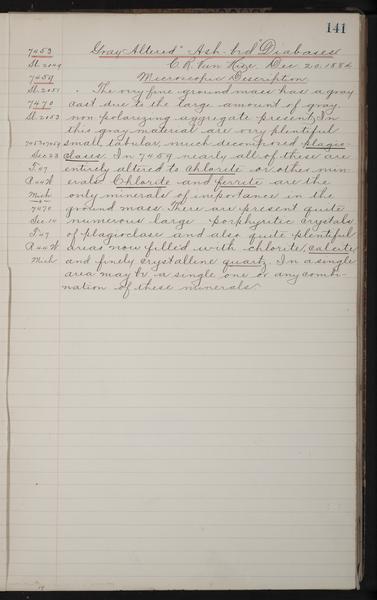 141
7453 Gray Altered "Ash-bed" Diabases
Sl. 2049 C. R. Van Hise. Dec. 20. 1884
7459 Microscopic Description
Sl. 2051 The very fine ground mass has a gray
7470 cast due to the large amount of gray
Sl. 2053 non polarizing aggregate present. In
this gray material are very plentiful
7453+7459 small tabular, much decomposed plagio-
Sec 23 clases. In 7459 nearly all of these are
T 47 entirely altered to chlorite or other min-
R 44 W erals. Chlorite and ferrite are the
Mich only minerals of importance in the
7470 ground mass. There are present quite
Sec. 14 numerous large porphyritic crystals
T 47 of plagioclase and also quite plentiful
R 44 W areas now filled with chlorite, calcite
Mich and finely crystalline quartz. In a single
area may be a single one or any combi-
nation of these minerals.